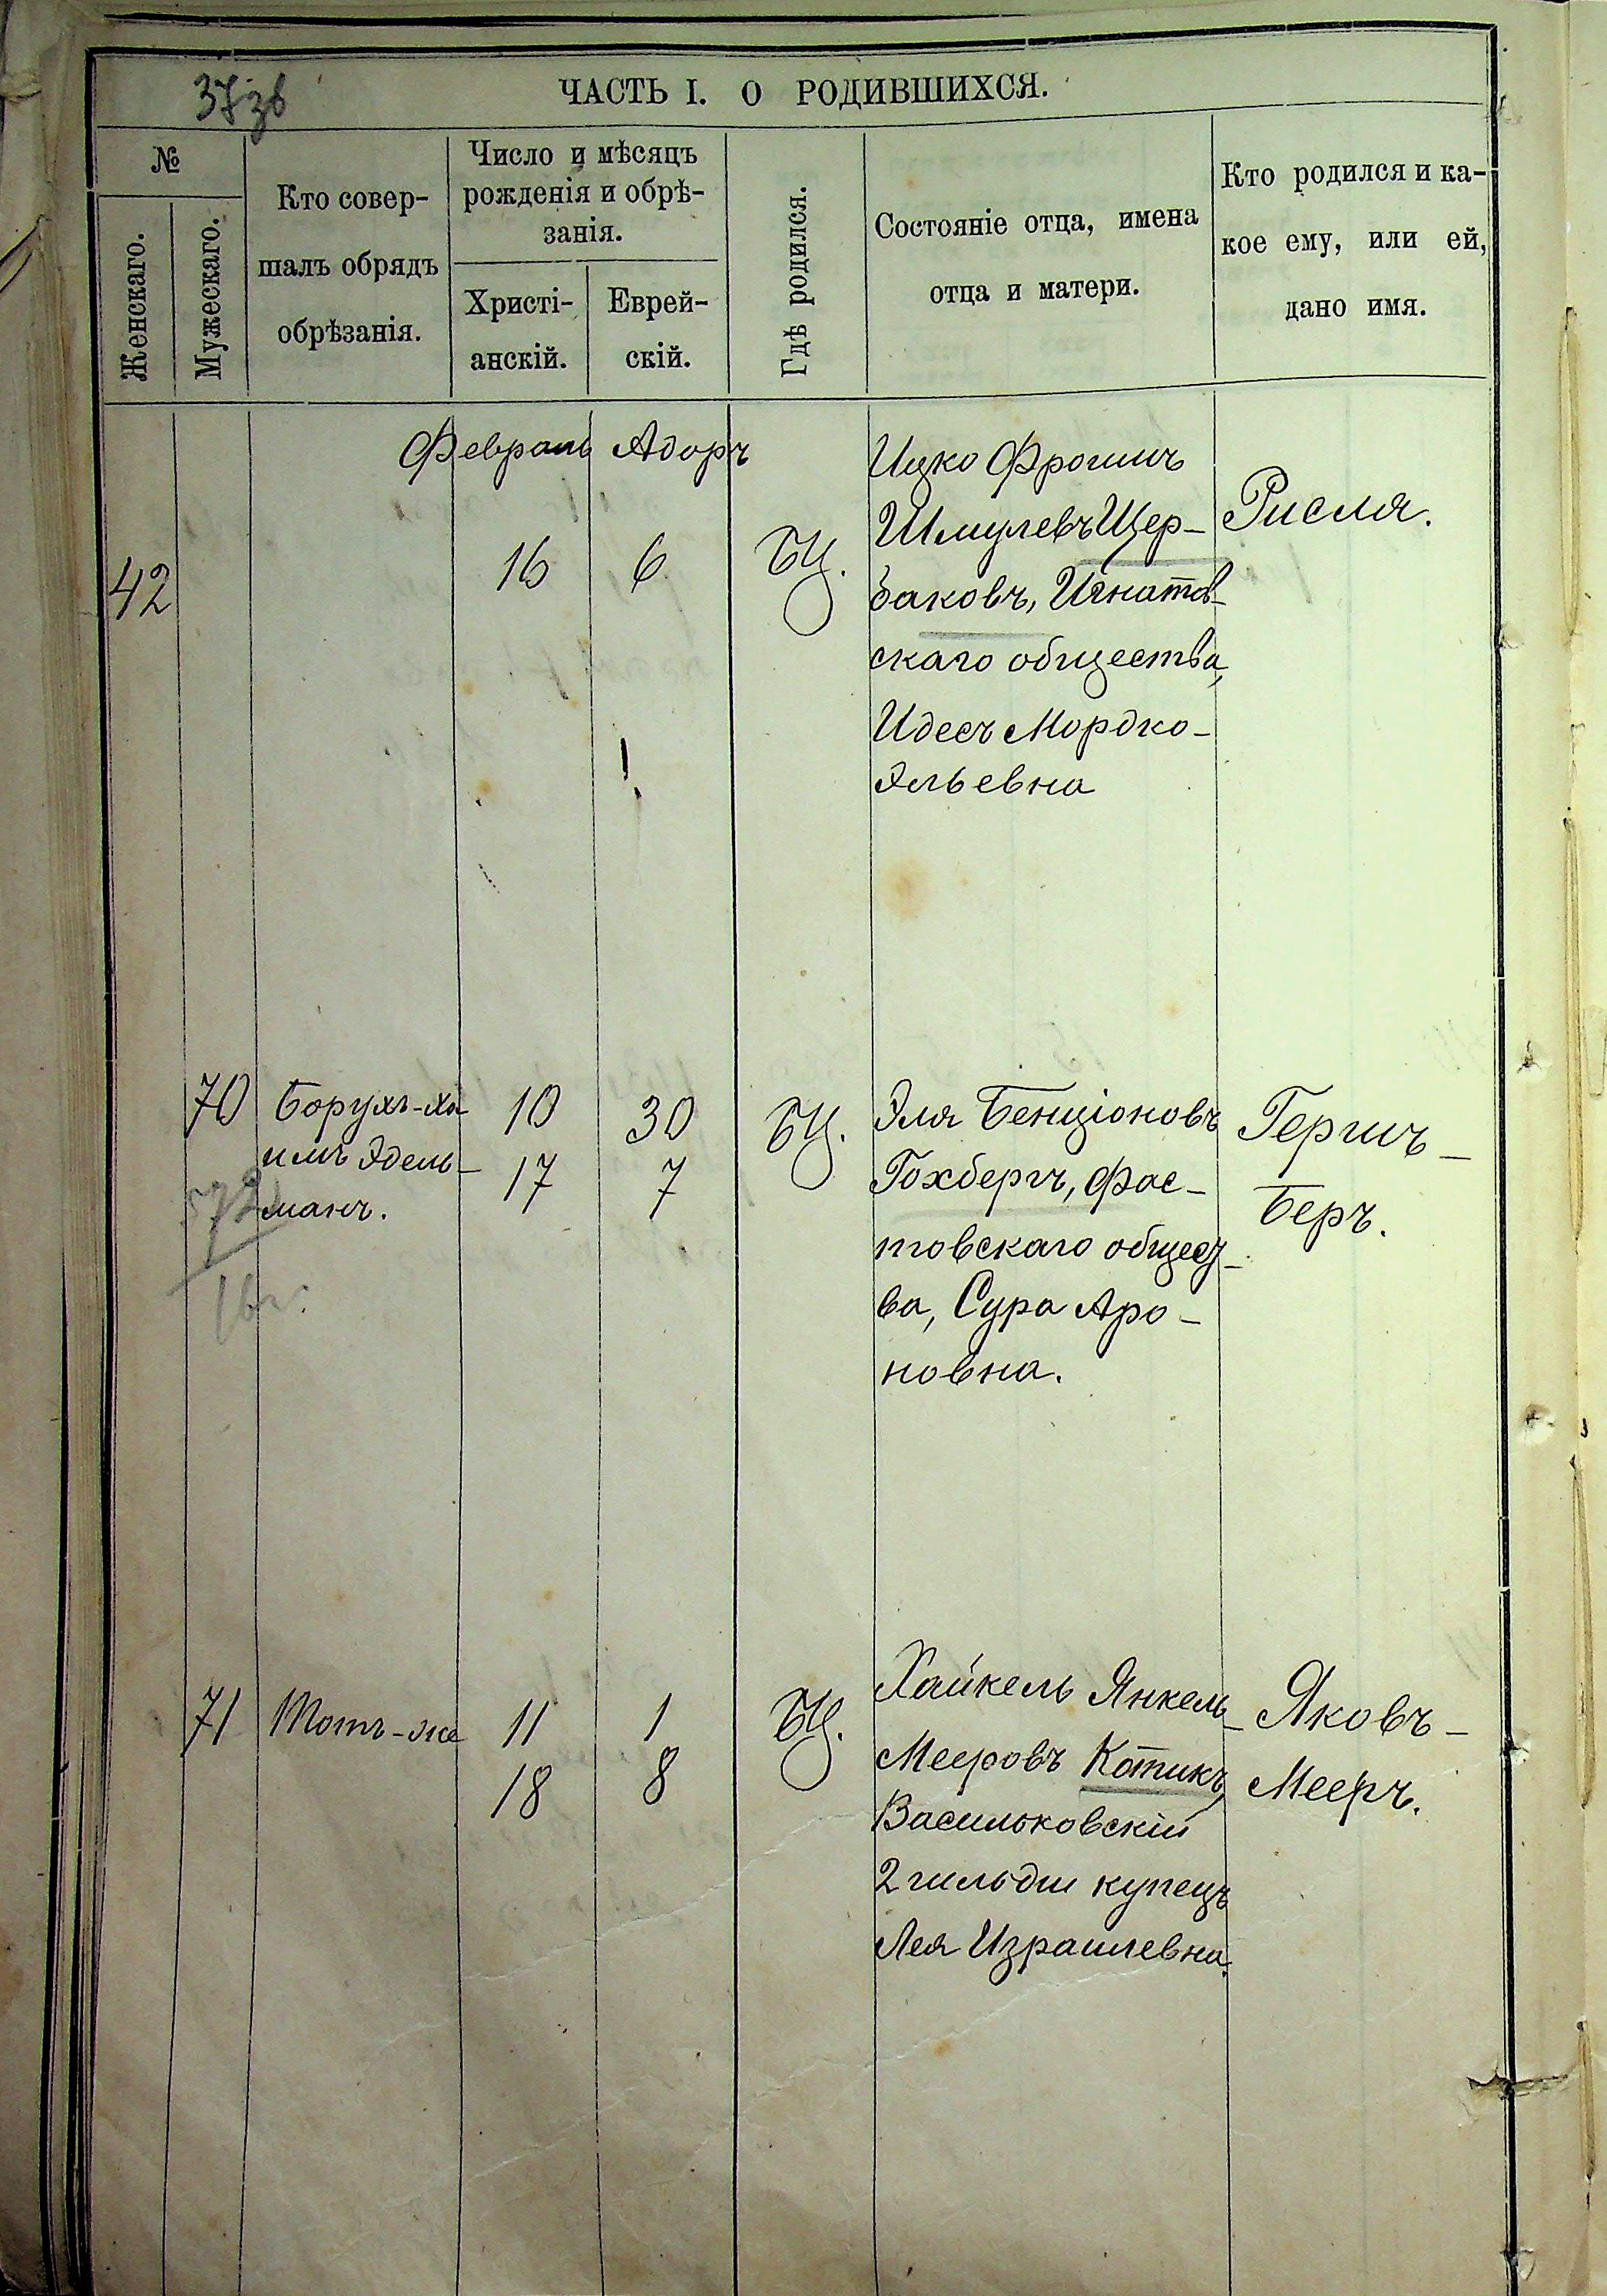 37зв
ЧАСТЬ I. О РОДИВШИХСЯ.
№
Женскаго.
Мужескаго.
Кто совер-
шалъ обрядъ
обрѣзанія.
Число и мѣсяцъ
рожденія и обрѣ-
занія.
Христі-
анскій.
Еврей-
скій.
Гдѣ родился.
Состояніе отца, имена
отца и матери.
Кто родился и ка-
кое ему, или ей,
дано имя.
Февраль Адоръ
42
16
6
БЦ.
Ицко Фроимъ
Шмулевъ Щер-
баковъ, Игнатов-
скаго общества,
Идесъ Мордко-
Эльевна
Рисля.
70
Борухъ-Ха
имъ Эдель-
манъ.
10
17
30
7
БЦ.
Эля Бенціоновъ
Гохбергъ, Фас-
товскаго общест-
ва, Сура Аро-
новна.
Гершъ-
Беръ.
71
Тотъ-же
11
18
1
8
БЦ.
Хайкель Янкель-
Мееровъ Котикъ,
Васильковскій
2 гильдіи купецъ
Лея Израилевна.
Яковъ-
Мееръ.